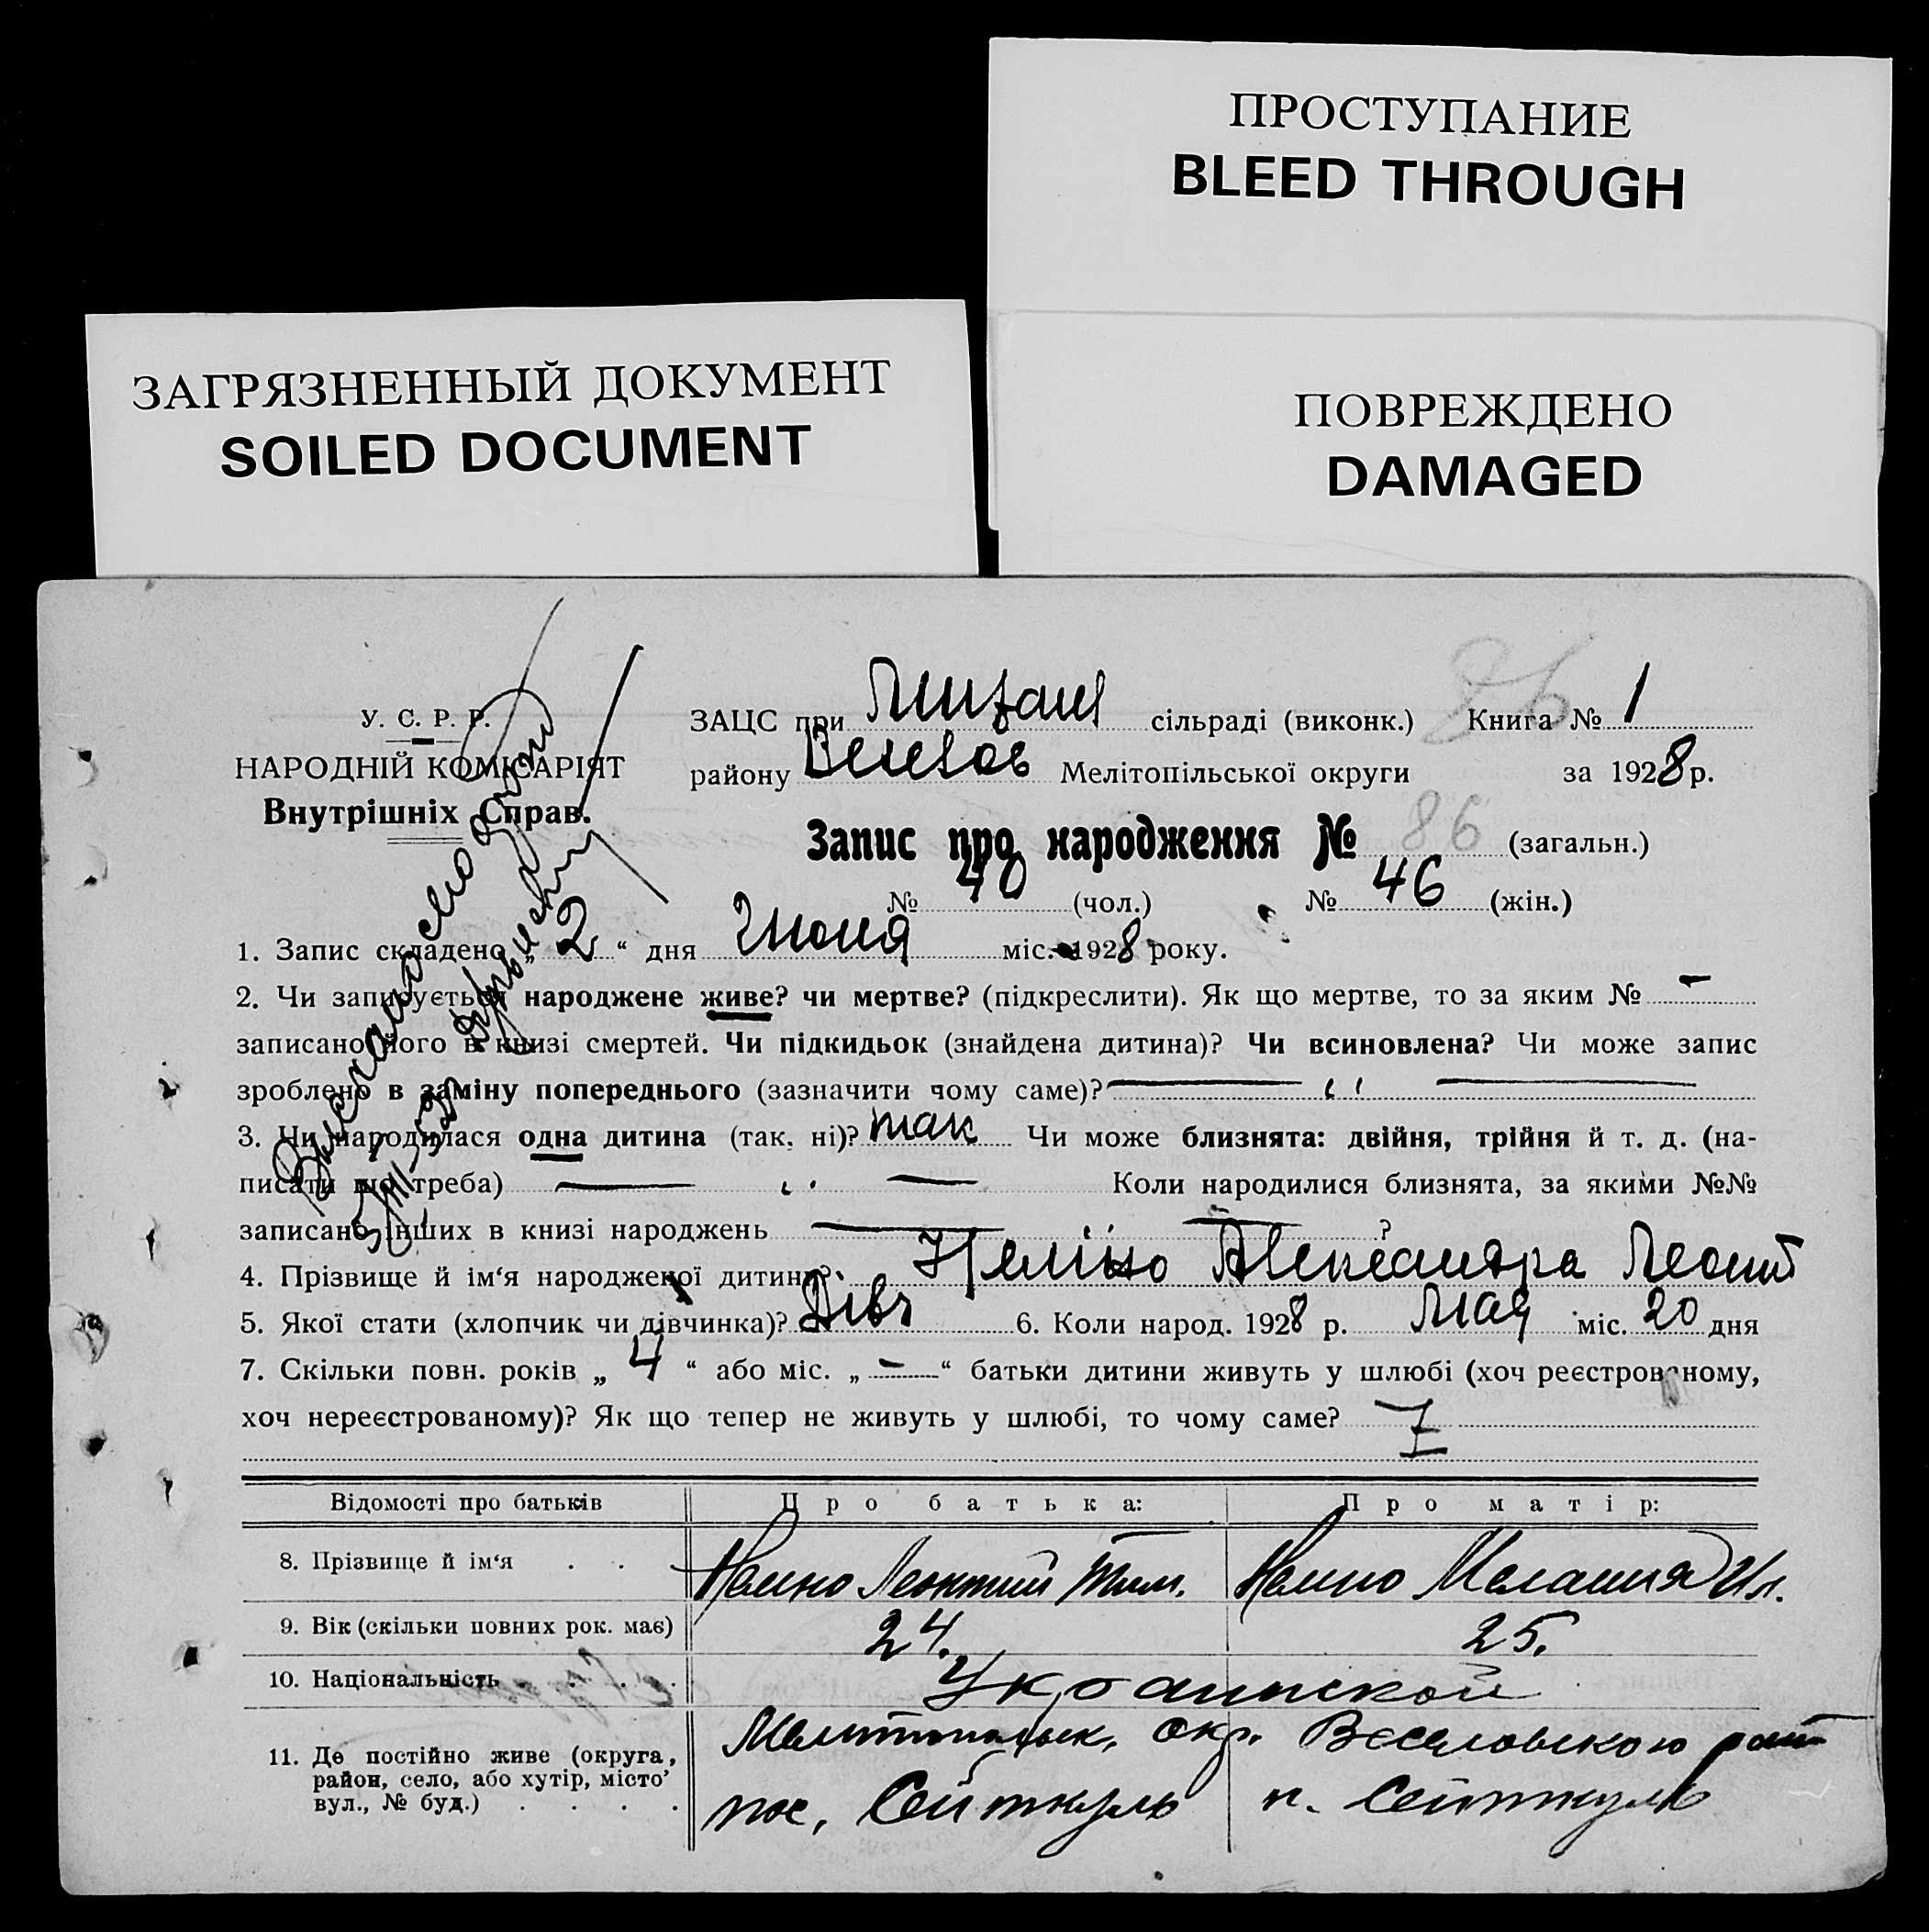 ПРОСТУПАНИЕ
BLEED THROUGH
ЗАГРЯЗНЕННЫЙ ДОКУМЕНТ
SOILED DOCUMENT
ПОВРЕЖДЕНО
DAMAGED
У. С. Р. Р.
НАРОДНІЙ КОМІСАРІЯТ
Внутрішніх Справ.
86
ЗАЦС при сільраді (виконк.) Книга № 1
району Веселов Мелітопільської округи за 1928 р.
Запис про народження № 86 (загальн.)
№ 40 (чол.) № 46 (жін.)
1. Запис складено „ 2 “ дня Июня міс. 1928 року.
2. Чи записується народжене живе? чи мертве? (підкреслити). Як що мертве, то за яким № —
записано його в книзі смертей. Чи підкидьок (знайдена дитина)? Чи всиновлена? Чи може запис
зроблено в заміну попереднього (зазначити чому саме)? — „ —
3. Чи народилася одна дитина (так, ні)? так Чи може близнята: двійня, трійня й т. д. (на-
писати що треба) — „ — Коли народилися близнята, за якими №№
записано інших в книзі народжень — — ?
4. Прізвище й ім‘я народженої дитини? Александра Леонт
5. Якої стати (хлопчик чи дівчинка)? Дівч 6. Коли народ. 1928 р. Мая міс. 20 дня
7. Скільки повн. років „ 4 “ або міс. „ — “ батьки дитини живуть у шлюбі (хоч реєстрованому,
хоч нереєстрованому)? Як що тепер не живуть у шлюбі, то чому саме?
Відомості про батьків Про батька: Про матір:
8. Прізвище й ім‘я . . Леонтий Тим. Мелания Ил.
9. Вік (скільки повних рок. має) 24. 25.
10. Національність . . . . Украинской
11. Де постійно живе (округа, Мелитопольск. окр. Веселовского рай
район, село, або хутір, місто’
вул., № буд.) . . . . пос. Сейткуль п. Сейткуль